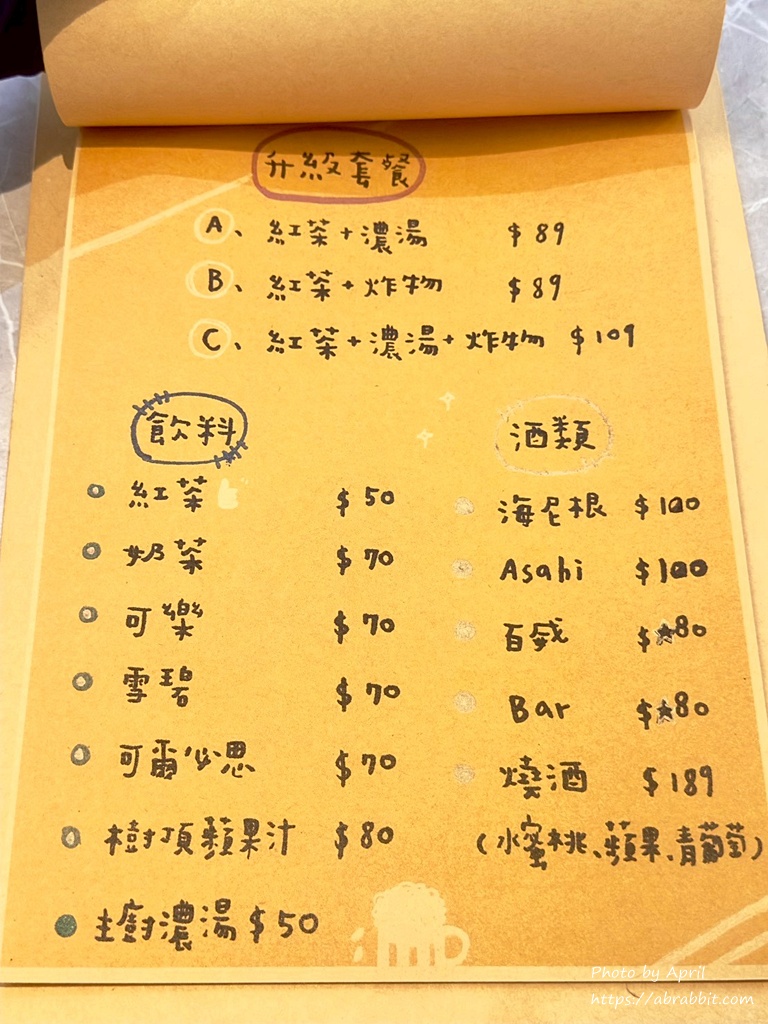 升級套餐
A、紅茶+濃湯 $89
B、紅茶+炸物 $89
C、紅茶+濃湯+炸物 $109
飲料
紅茶 $50
奶茶 $70
可樂 $70
雪碧 $70
可爾必思 $70
樹頂蘋果汁 $80
主廚濃湯 $50
酒類
海尼根 $100
Asahi $100
百威 $80
Bar $80
燒酒 $189
(水蜜桃、蘋果、青葡萄)
Photo by April
https://abrabbit.com